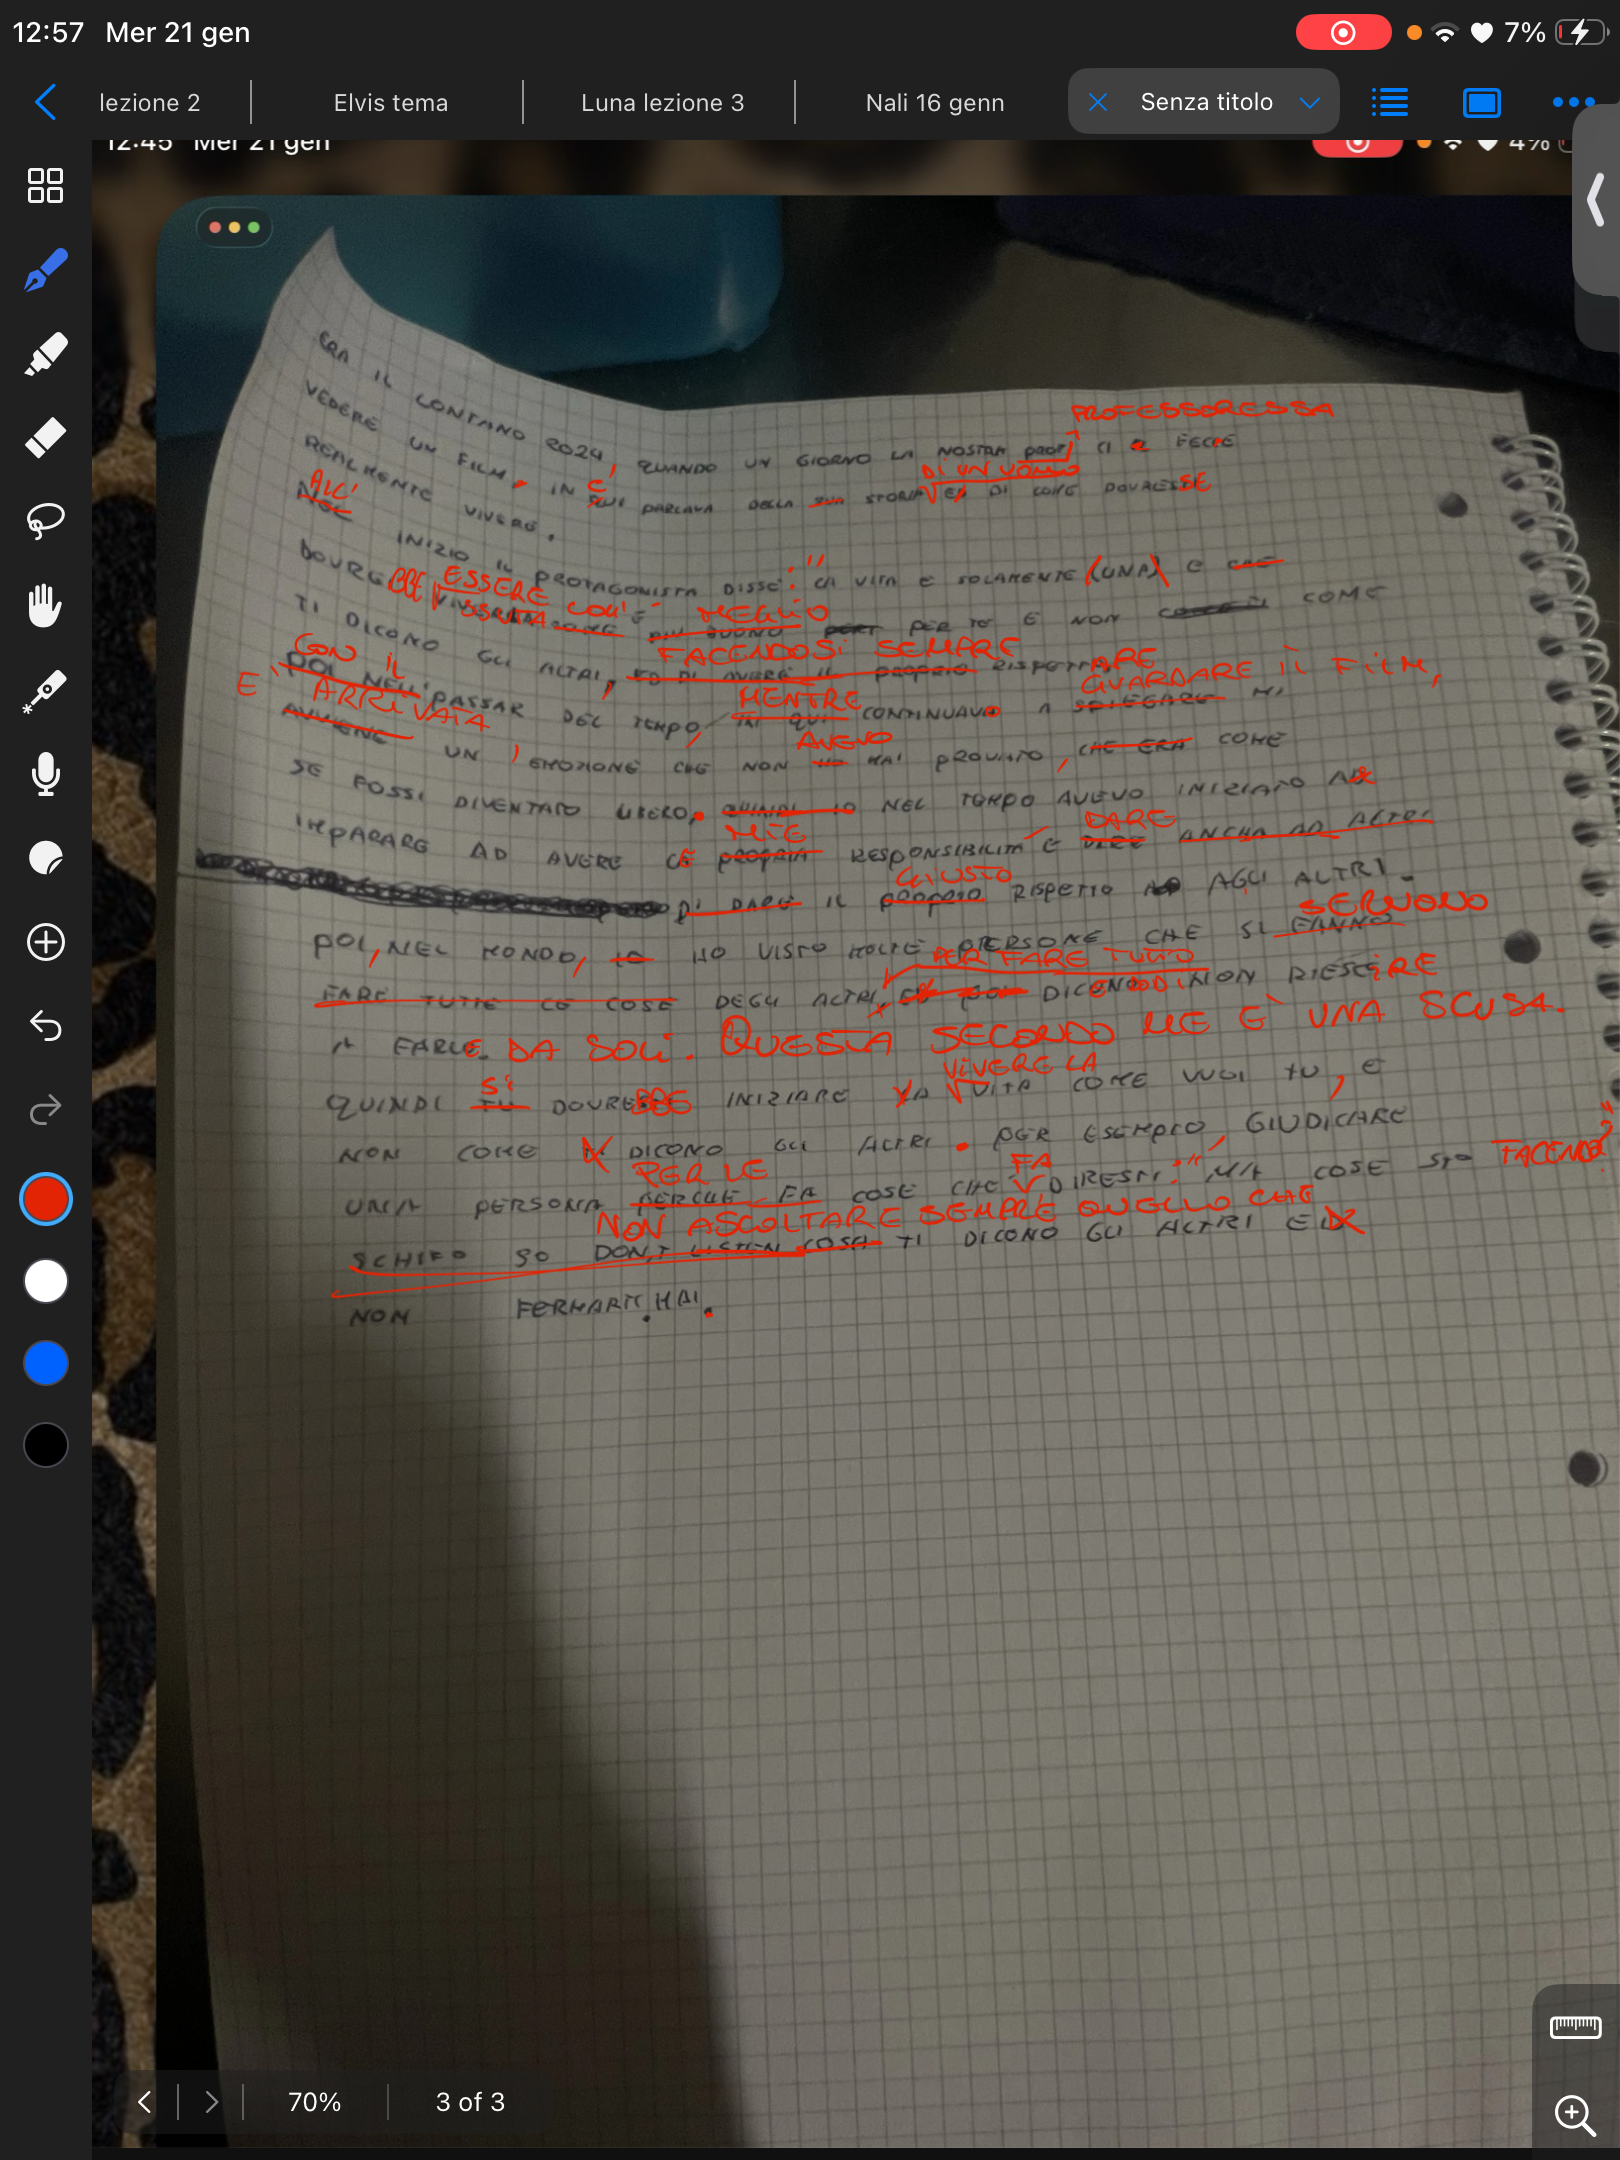 12:57 Mer 21 gen 7%
lezione 2 Elvis tema Luna lezione 3 Nali 16 genn Senza titolo
12:45 Mer 21 gen 4%
PROFESSORESSA
ERA IL LONTANO 2024, QUANDO UN GIORNO LA NOSTRA PROF CI FECE
DI UN UOMO
VEDERE UN FILM, IN CUI PARLAVA DELLA STORIA E DI COME DOVRESSE
REALMENTE VIVERE.
ALL'
INIZIO IL PROTAGONISTA DISSE: " LA VITA E SOLAMENTE (UNA) E CHE
ESSERE
DOVREBBE VISSUTA COSI' E MEGLIO PER TE E NON COME
FACENDOSI SEMPRE
TI DICONO GLI ALTRI, ED DI AVERE IL PROPRIO RISPETTARE
CON IL GUARDARE IL FILM,
POI NELL'PASSAR DEL TEMPO, MENTRE CONTINUAVO A SPIEGARE MI
E' ARRIVATA AVEVO
AVVENE UN'EMOZIONE CHE NON HO MAI PROVATO, CHE ERA COME
SE FOSSI DIVENTATO LIBERO. QUINDI IO NEL TEMPO AVEVO INIZIATO A
MIE DARE
IMPARARE AD AVERE LE PROPRIA RESPONSIBILITA E DARE ANCHA AD ALTRI
GIUSTO
DI DARE IL PROPRIO RISPETTO AGLI ALTRI.
SERVONO
POI, NEL MONDO, IO HO VISTO MOLTE PERSONE CHE SI FANNO
PER FARE TUTTO
FARE TUTTE LE COSE DEGLI ALTRI, DICENDO DI NON RIESCIRE
A FARLE DA SOLI. QUESTA SECONDO ME E' UNA SCUSA.
SI VIVERE LA
QUINDI TU DOVREBBE INIZIARE LA VITA COME VUOI TU, E
NON COME DICONO GLI ALTRI. PER ESEMPIO, GIUDICARE
PER LE FA
UNA PERSONA PERCHE FA COSE CHE DIRESTI: " MA COSE STO FACENDO?"
NON ASCOLTARE SEMPRE QUELLO CHE
SCHIFO SO DON,T LISTEN COSA TI DICONO GLI ALTRI E
NON FERMARTI MAI.
70% 3 of 3